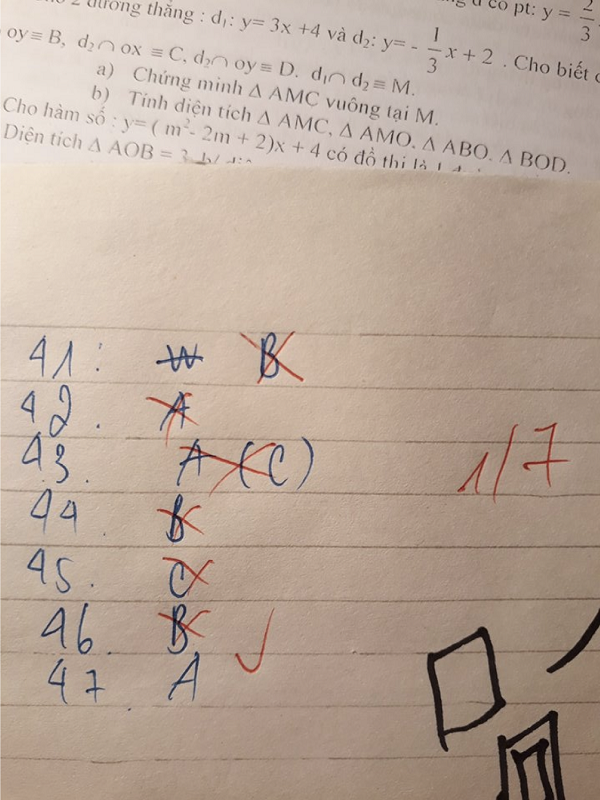 2 đường thẳng : d₁: y= 3x +4 và d₂: y= - 1/3 x + 2 . Cho biết
có pt: y = 2/3
oy ≡ B, d₂∩ ox ≡ C, d₂∩ oy ≡ D. d₁∩ d₂ ≡ M.
a) Chứng minh Δ AMC vuông tại M.
b) Tính diện tích Δ AMC, Δ AMO, Δ ABO, Δ BOD.
Cho hàm số : y= ( m²- 2m + 2)x + 4 có đồ thị là
Diện tích Δ AOB = 3
41: B
42. A
43. A (C)
44 B
45. C
46. B
47. A
1/7